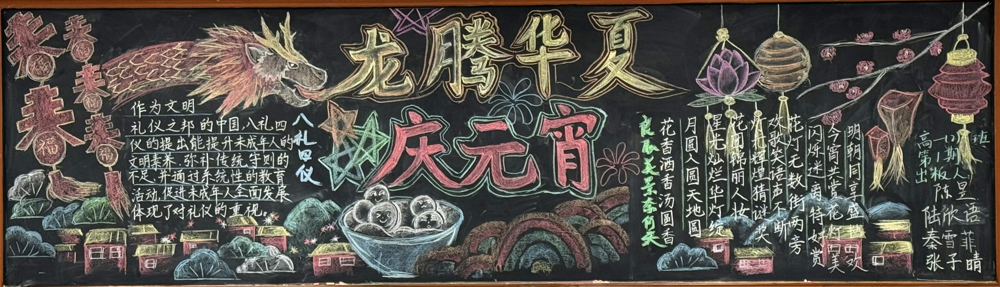 春福
春福
春福
春福
春福
龙腾华夏
庆元宵
八礼四仪
作为文明
礼仪之邦的中国,八礼四
仪的提出能提升未成年人的
文明素养,弥补传统守则的
不足,并通过系统性的教育
活动,促进未成年人全面发展
体现了对礼仪的重视。
良辰美景奈何天
花香酒香汤圆香
月圆人圆天地圆
星光灿烂华灯绽
花团锦丽人妆
火花辉煌猜谜奖
欢歌笑语声不断
花灯无数街两旁
闪烁迷离待好赏
今宵共赏花灯美
明朝同享盛世欢
高 班
第 期
出板人
陈昱
陆欣语
秦雪菲
张子晴